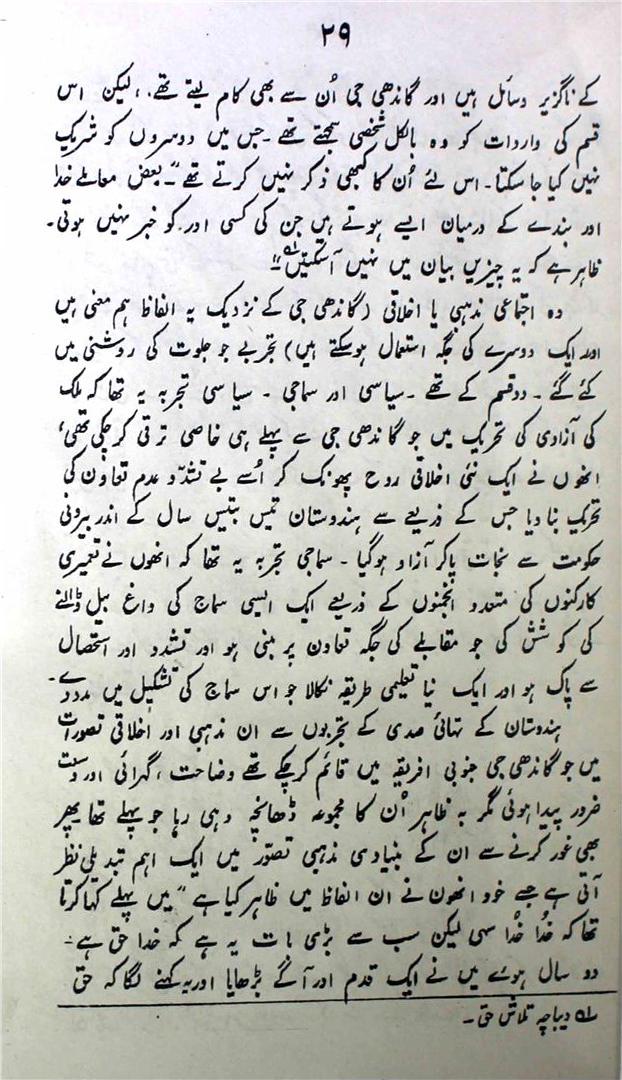 ۲۹
کے ناگزیر وسائل ہیں اور گاندھی جی اُن سے بھی کام لیتے تھے، لیکن اس
قسم کی واردات کو وہ بالکل شخصی سمجھتے تھے۔ جس میں دوسروں کو شریک
نہیں کیا جا سکتا۔ اس لئے اُن کا کبھی ذکر نہیں کرتے تھے "۔ بعض معاملے خدا
اور بندے کے درمیان ایسے ہوتے ہیں جن کی کسی اور کو خبر نہیں ہوتی۔
ظاہر ہے کہ یہ چیزیں بیان میں نہیں آ سکتیں۱؎"
وہ اجتماعی مذہبی یا اخلاقی (گاندھی جی کے نزدیک یہ الفاظ ہم معنی ہیں
اور ایک دوسرے کی جگہ استعمال ہو سکتے ہیں) تجربے جو جلوت کی روشنی میں
کئے گئے۔ دو قسم کے تھے۔ سیاسی اور سماجی۔ سیاسی تجربہ یہ تھا کہ ملک
کی آزادی کی تحریک میں جو گاندھی جی سے پہلے ہی خاصی ترقی کر چکی تھی،
انھوں نے ایک نئی اخلاقی روح پھونک کر اُسے بے تشدّد عدم تعاون کی
تحریک بنا دیا جس کے ذریعے سے ہندوستان تیس بتیس سال کے اندر بیرونی
حکومت سے نجات پاکر آزاد ہوگیا۔ سماجی تجربہ یہ تھا کہ انھوں نے تعمیری
کارکنوں کی متعدد انجمنوں کے ذریعے ایک ایسی سماج کی داغ بیل ڈالنے
کی کوشش کی جو مقابلے کی جگہ تعاون پر مبنی ہو اور تشدد اور استحصال
سے پاک ہو اور ایک نیا تعلیمی طریقہ نکالا جو اس سماج کی تشکیل میں مدد دے۔
ہندوستان کے تہائی صدی کے تجربوں سے ان مذہبی اور اخلاقی تصورات
میں جو گاندھی جی جنوبی افریقہ میں قائم کر چکے تھے وضاحت، گہرائی اور وسعت
ضرور پیدا ہوئی مگر بہ ظاہر اُن کا مجموعہ ڈھانچہ وہی رہا جو پہلے تھا پھر
بھی غور کرنے سے ان کے بنیادی مذہبی تصوّر میں ایک اہم تبدیلی نظر
آتی ہے جسے خود انھوں نے ان الفاظ میں ظاہر کیا ہے "میں پہلے کہا کرتا
تھا کہ خُدا خُدا سہی لیکن سب سے بڑی بات یہ ہے کہ خدا حق ہے۔
دو سال ہوئے میں نے ایک قدم اور آگے بڑھایا اور یہ کہنے لگا کہ حق
۱؎ دیباچہ تلاش حق۔